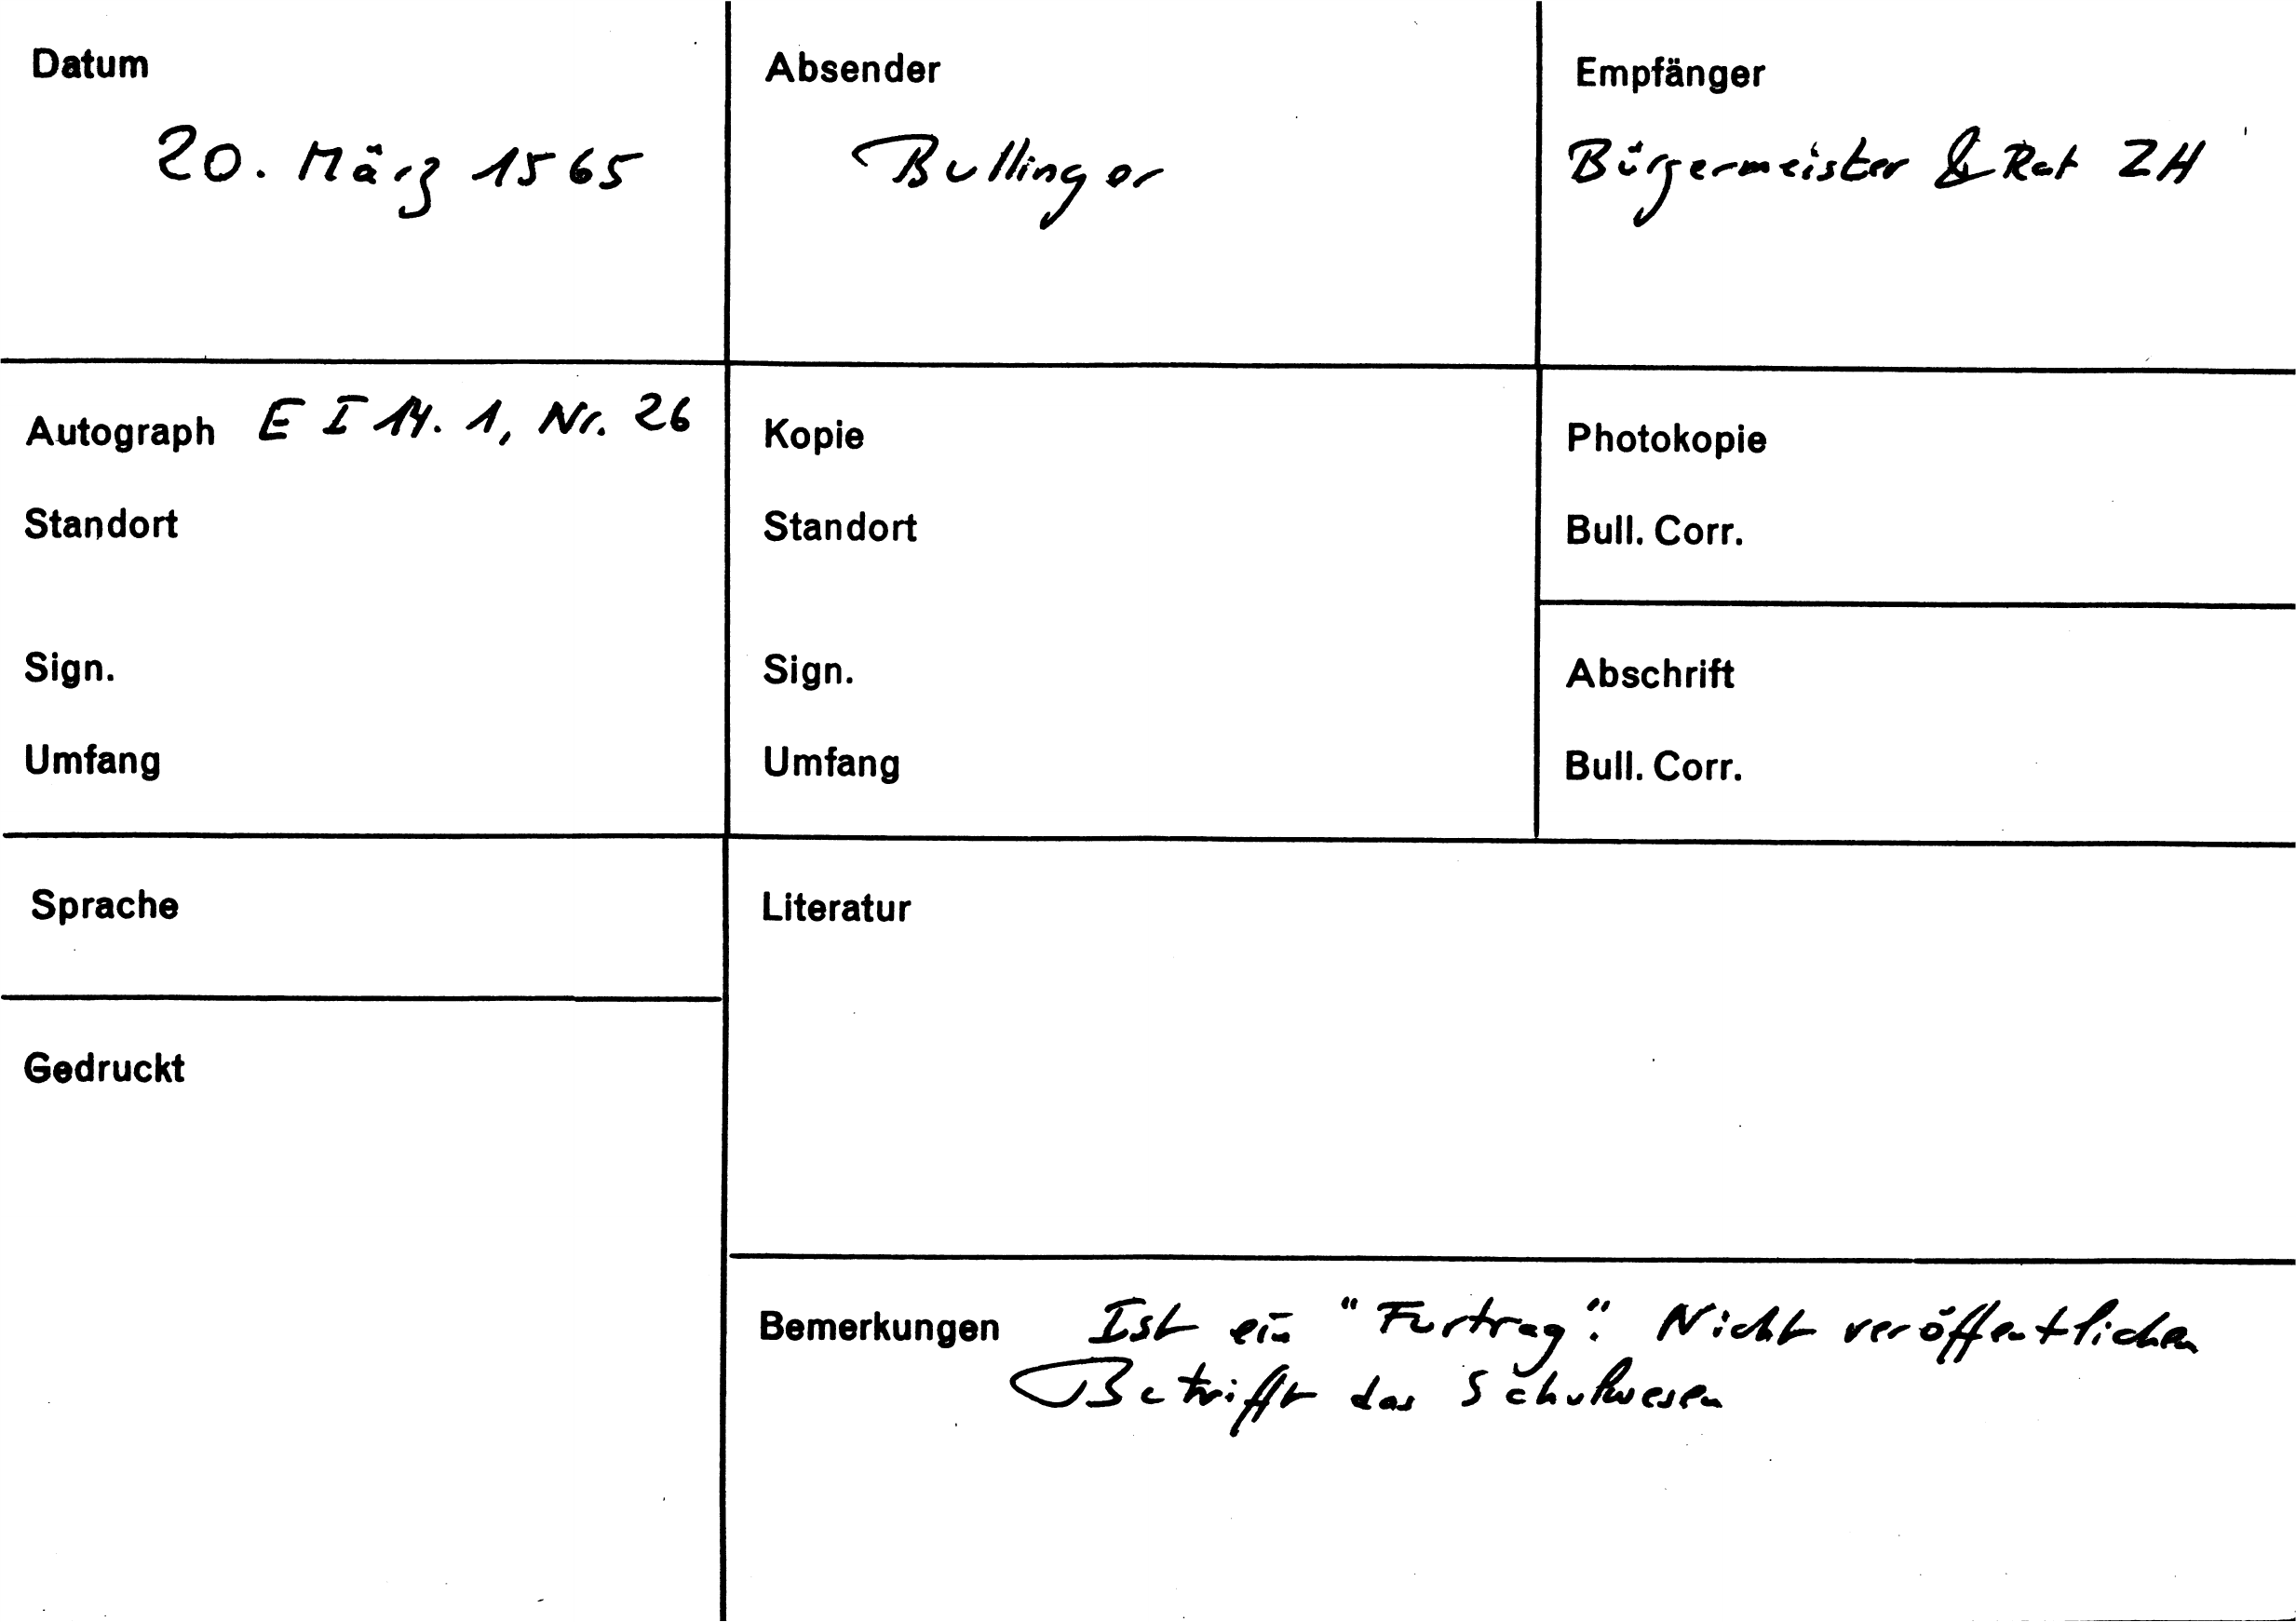 Datum
20. März 1565
Absender
Bullinger
Empfänger
Bürgermeister & Rat ZH
Autograph E I 14. 1, Nr. 26
Standort
Sign.
Umfang
Kopie
Standort
Sign.
Umfang
Photokopie
Bull. Corr.
Abschrift
Bull. Corr.
Sprache
Gedruckt
Literatur
Bemerkungen Ist ein "Furtrag". Nicht veröffentlichen
Betrifft das Schulwesen